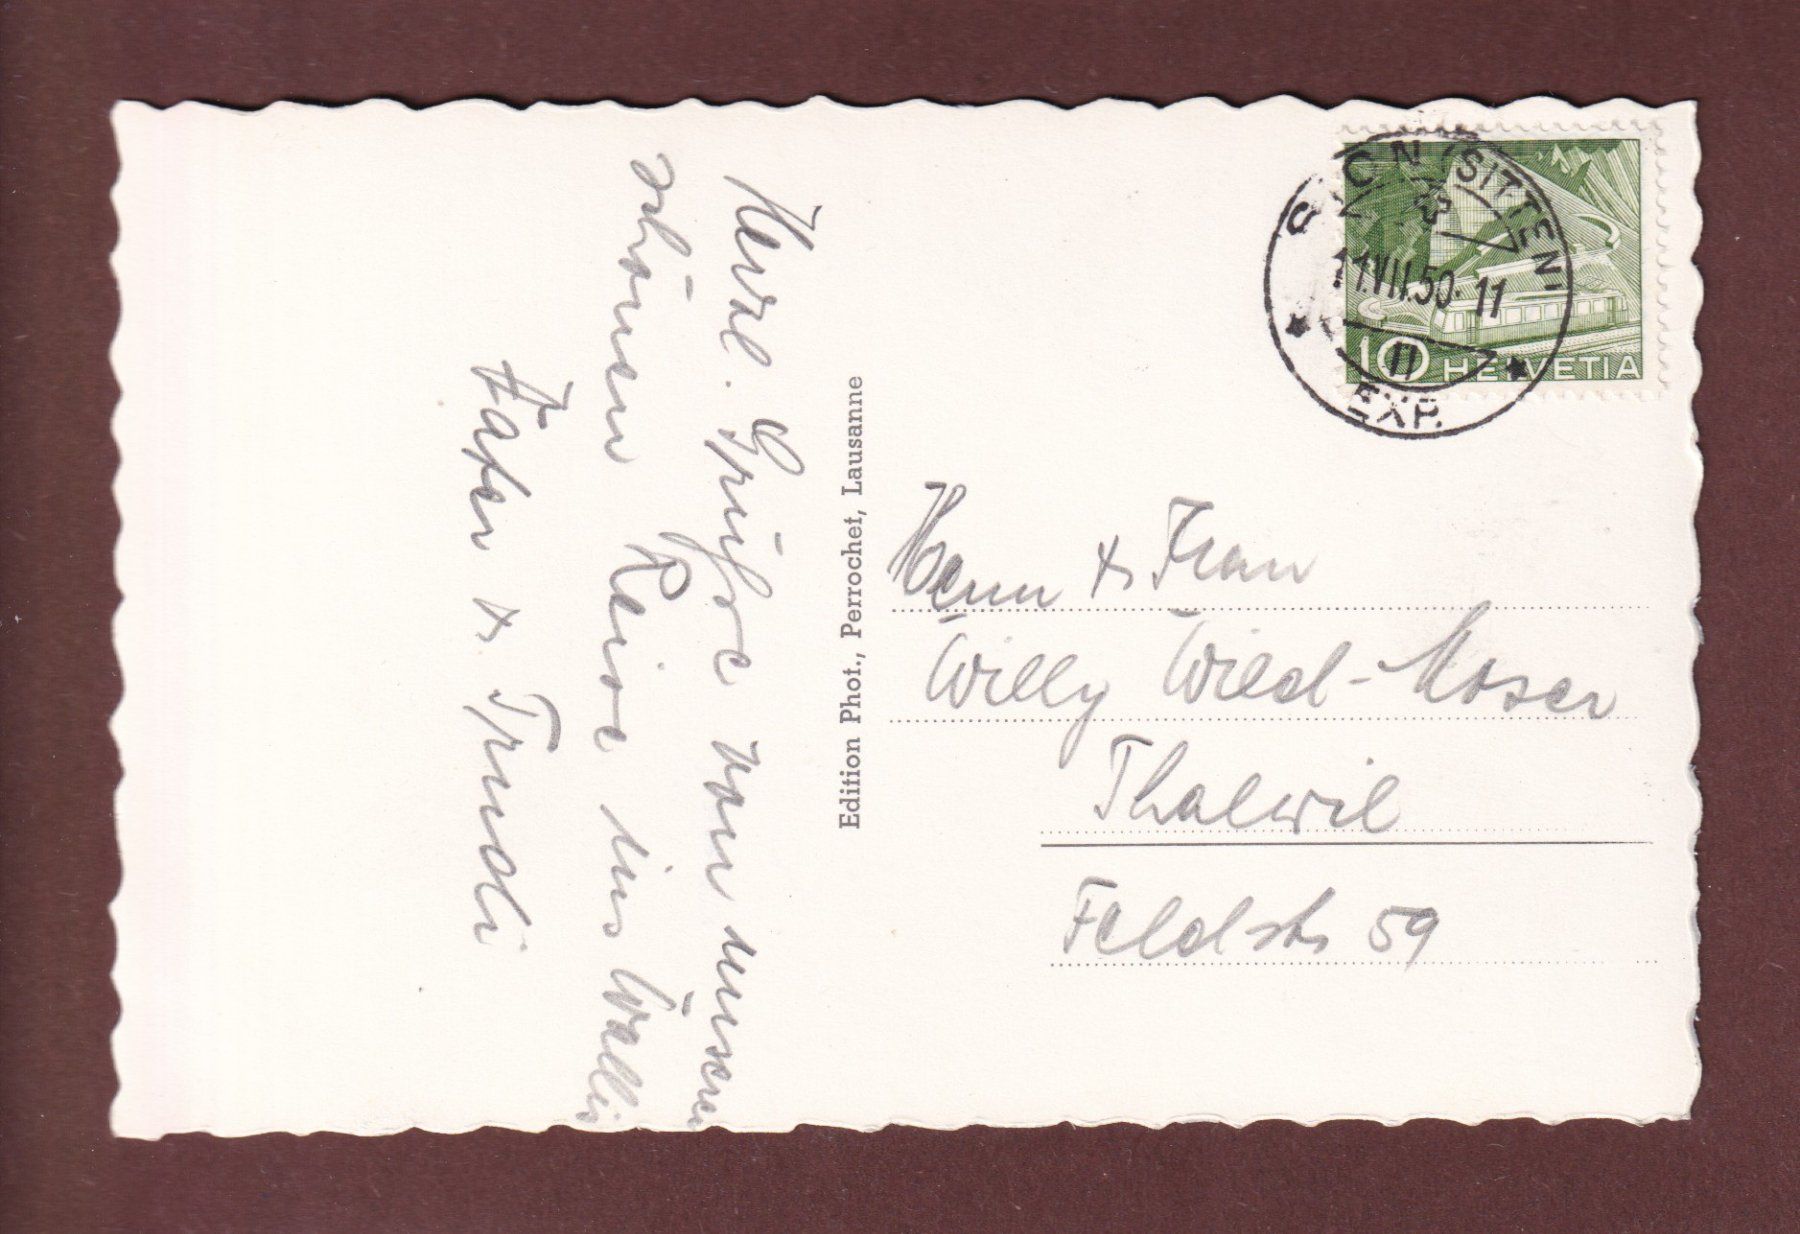 Herzl. Grüsse von unserer
schönen Reise ins Wallis
Vater & Trudi
Edition Phot., Perrochet, Lausanne
SION (SITTEN)
11.VII.50. 11
EXP.
10 HELVETIA
Herrn & Frau
Willy Wied-Moser
Thalwil
Feldstr 59